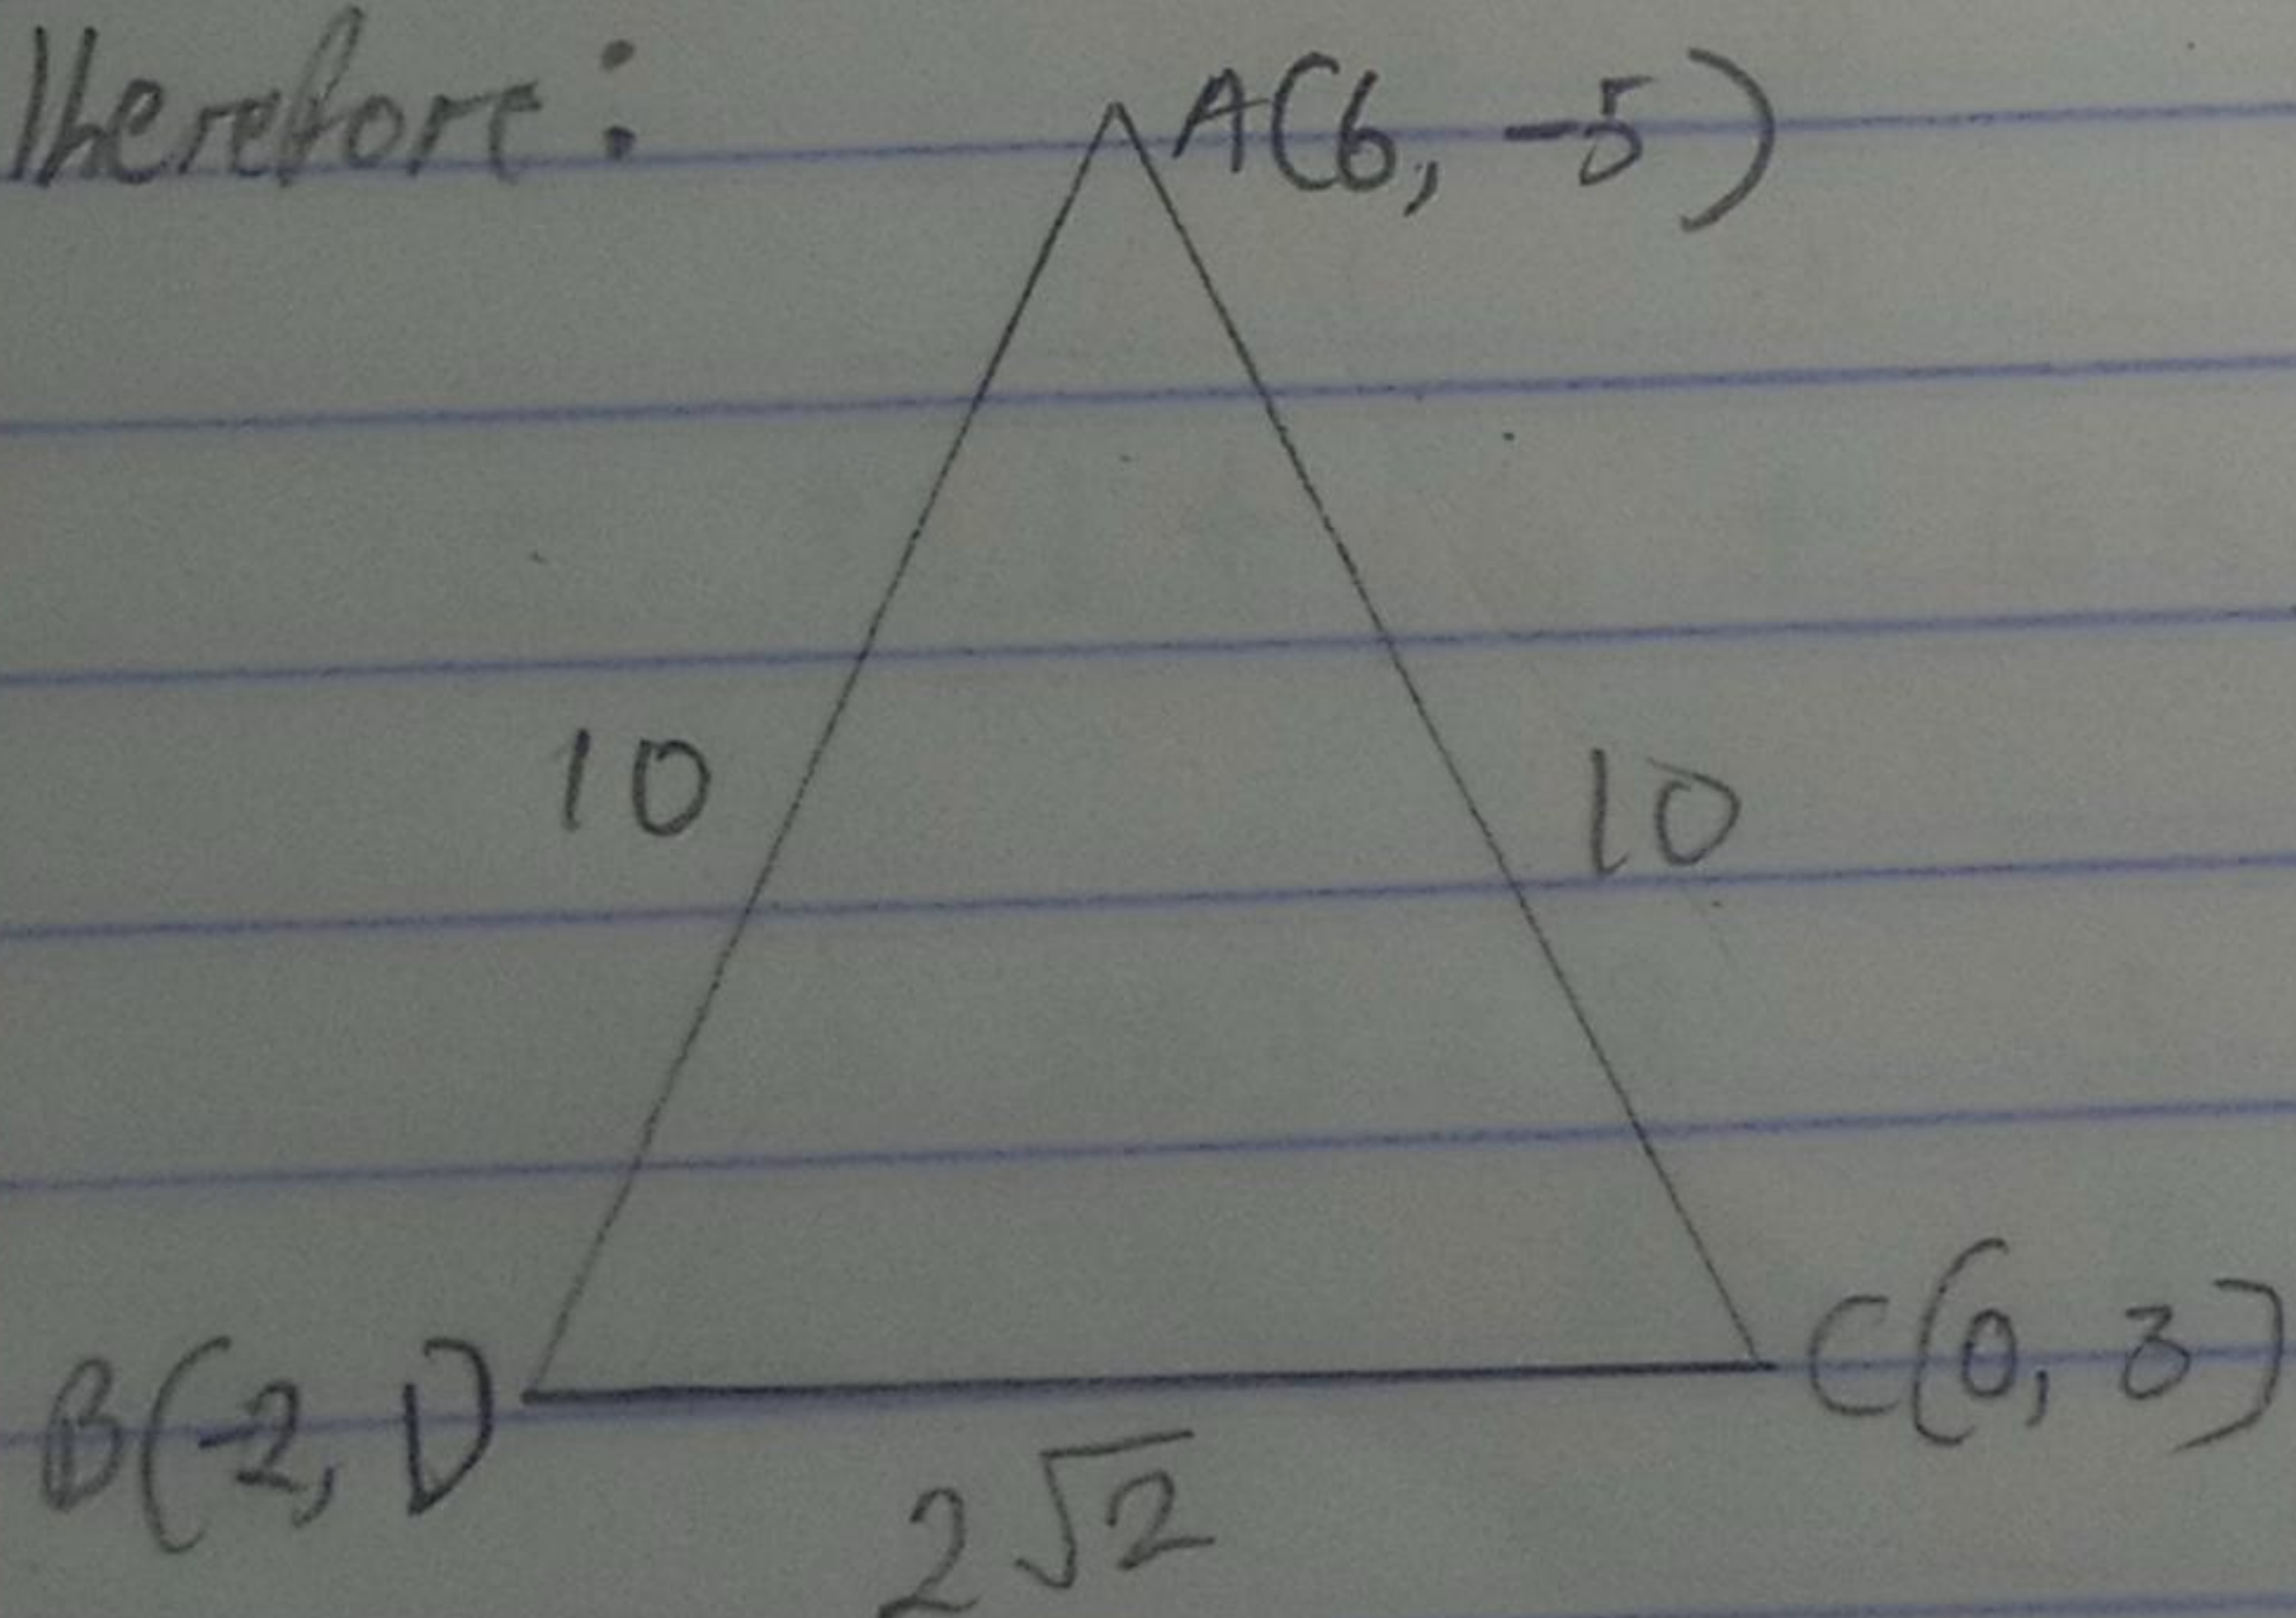 Therefore:
A(6, -5)
10
10
B(-2, 1)
C(0, 3)
2√2